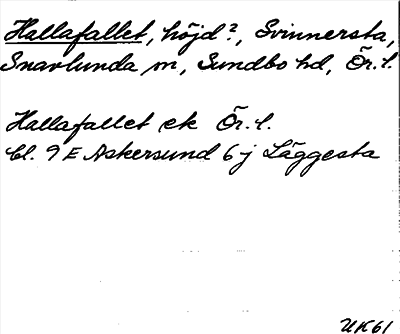 Hallafallet, höjd?, Svinnersta,
Snavlunda sn, Sundbo hd, Ör. l.
Hallafallet ek Ör. l.
bl. 9 E Askersund 6 j Läggesta
UK61